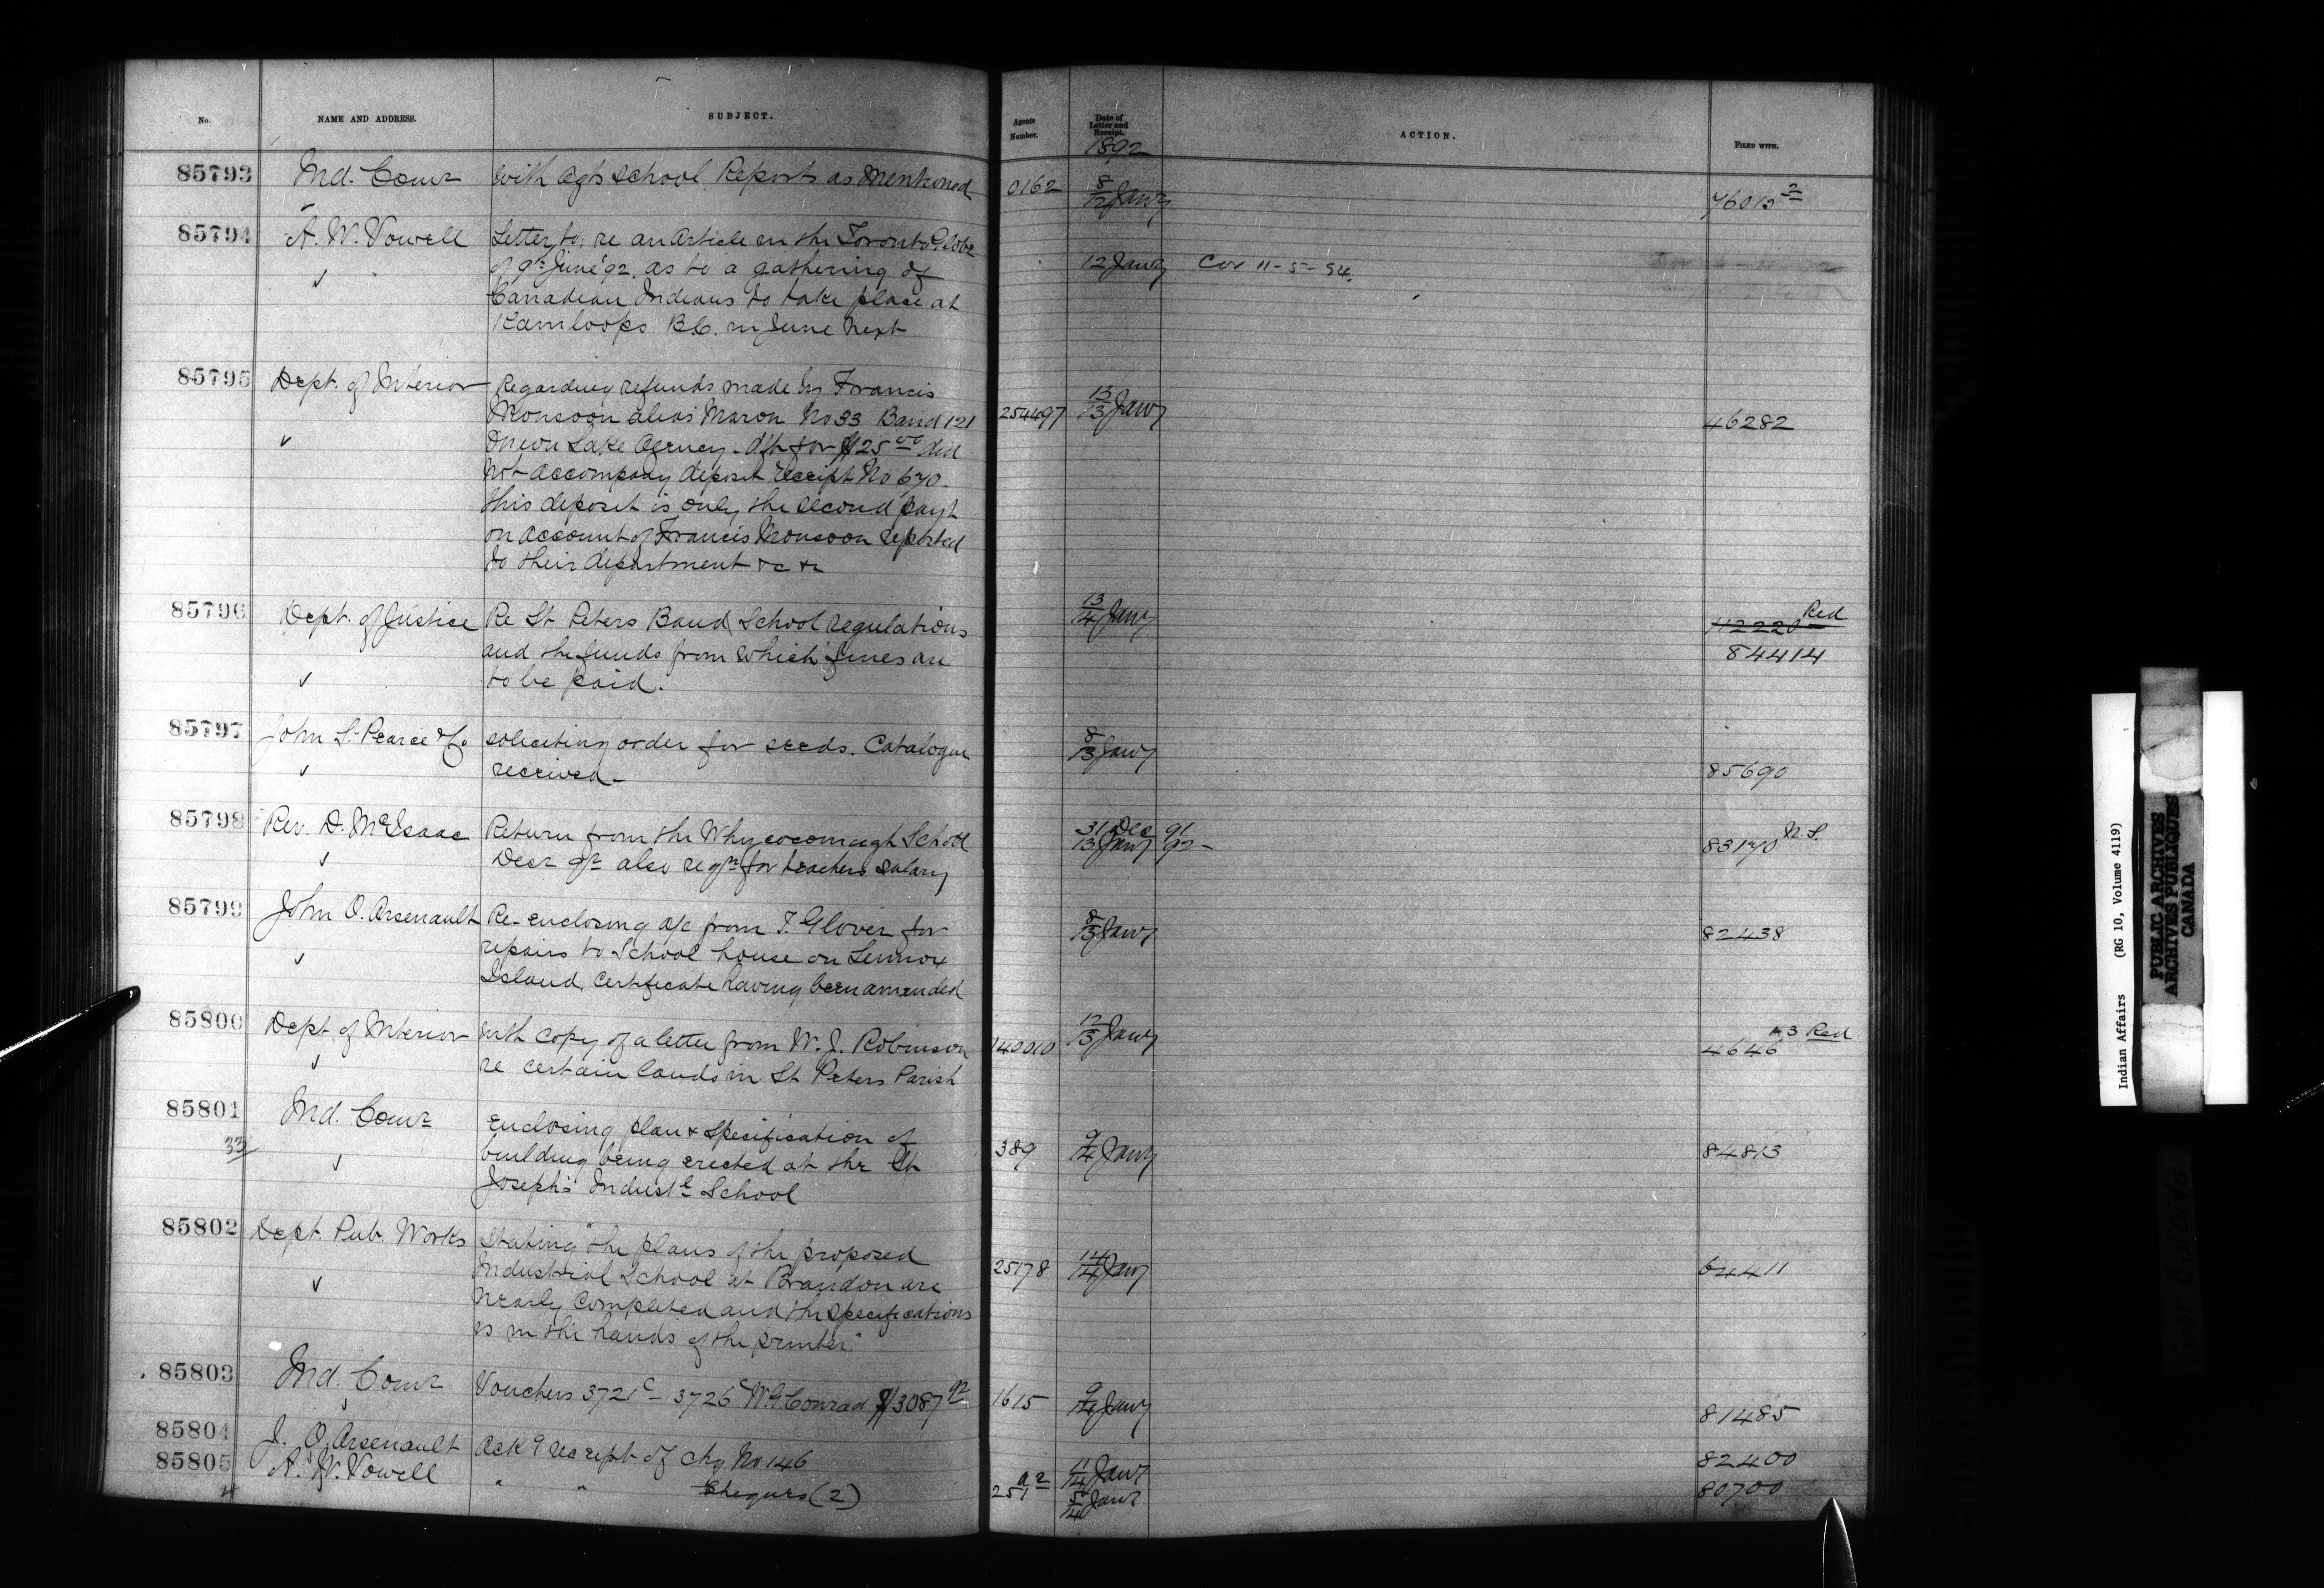 No. NAME AND ADDRESS. SUBJECT. Agents Number. Date of Letter and Receipt. ACTION. FILED WITH.
1892
85793 Ind. Comr With Agts School Reports as Mentioned 0162 8/12 Jany 76015-2
85794 A. W. Vowell Letter to, re an Article in the Toronto Globe
✓ of 9th June '92, as to a gathering of 12 Jany Cor 11-5-94.
Canadian Indians to take place at
Kamloops B.C. in June next
85795 Dept. of Interior Regarding refunds made by Francis 13/13 Jany
Monsoon alias Maron No 33 Band 121 254497 46282
✓ Onion Lake Agency - dft for $25.00 did
not accompany deposit receipt No 670.
this deposit is only the second payt
on account of Francis Monsoon reported
to their department &c &c
85796 Dept. of Justice Re St Peters Band School regulations 13/14 Jany 112220 Red
and the funds from which fines are 84414
✓ to be paid.
85797 John S. Pearce & Co soliciting order for seeds. Catalogue 8/13 Jany
✓ received - 85690
85798 Rev. D. McIsaac Return from the Whycocomagh School 31 Dec 91
✓ Decr qr also reqn for teachers salary 13 Jany 92 - 83170 N.S.
85799 John O. Arsenault Re-enclosing a/c from T. Glover for 8/13 Jany 82438
✓ repairs to School house on Lennox
Island, Certificate having been amended
85800 Dept. of Interior with copy of a letter from W. J. Robinson 140010 12/13 Jany 4646 -3 Red
✓ re certain lands in St Peters Parish
85801 Ind. Comr Enclosing plan & specification of
33 ✓ building being erected at the St 389 9/14 Jany 84813
Joseph's Industl School
85802 Dept. Pub. Works Stating "the plans of the proposed
✓ Industrial School at Brandon are 25178 14/14 Jany 64411
nearly completed and the specifications
is in the hands of the printer."
85803 Ind. Comr Vouchers 3721c - 3726c W. G. Conrad $3087.92 1615 9/14 Jany 81485
85804 J. O. Arsenault Ack g receipt of chq No 146 11/14 Jany 82400
85805 A. W. Vowell " " Cheques (2) 251 a2 5/14 Jany 80700
Indian Affairs (RG 10, Volume 4119)
PUBLIC ARCHIVES
ARCHIVES PUBLIQUES
CANADA